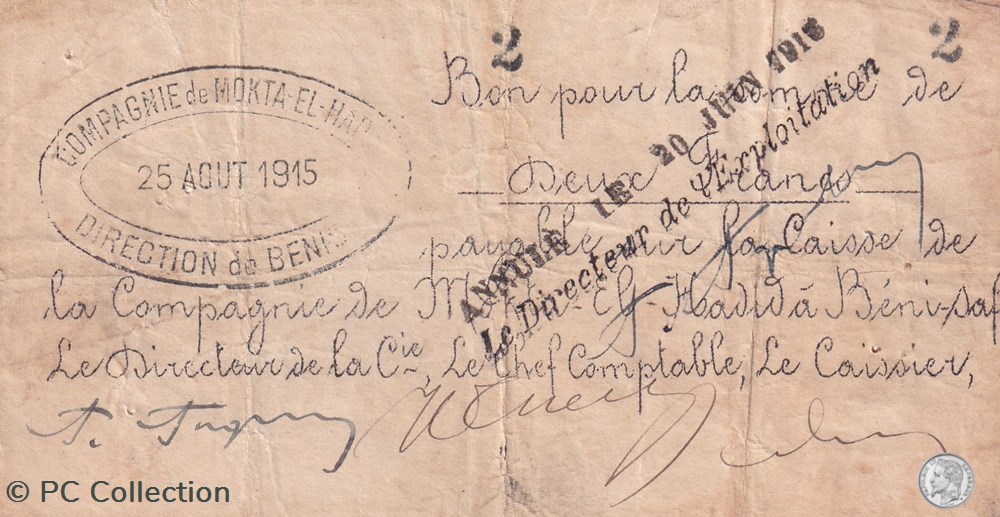 2 2
COMPAGNIE de MOKTA-EL-HAD
25 AOUT 1915
DIRECTION de BENI
Bon pour la somme de
Deux Francs
payable sur la Caisse de
la Compagnie de Mokta-El-Hadid à Béni-Saf
Le Directeur de la Cie, Le Chef Comptable, Le Caissier,
ANNULÉ LE 20 JUIN 1916
Le Directeur de l'Exploitation
© PC Collection